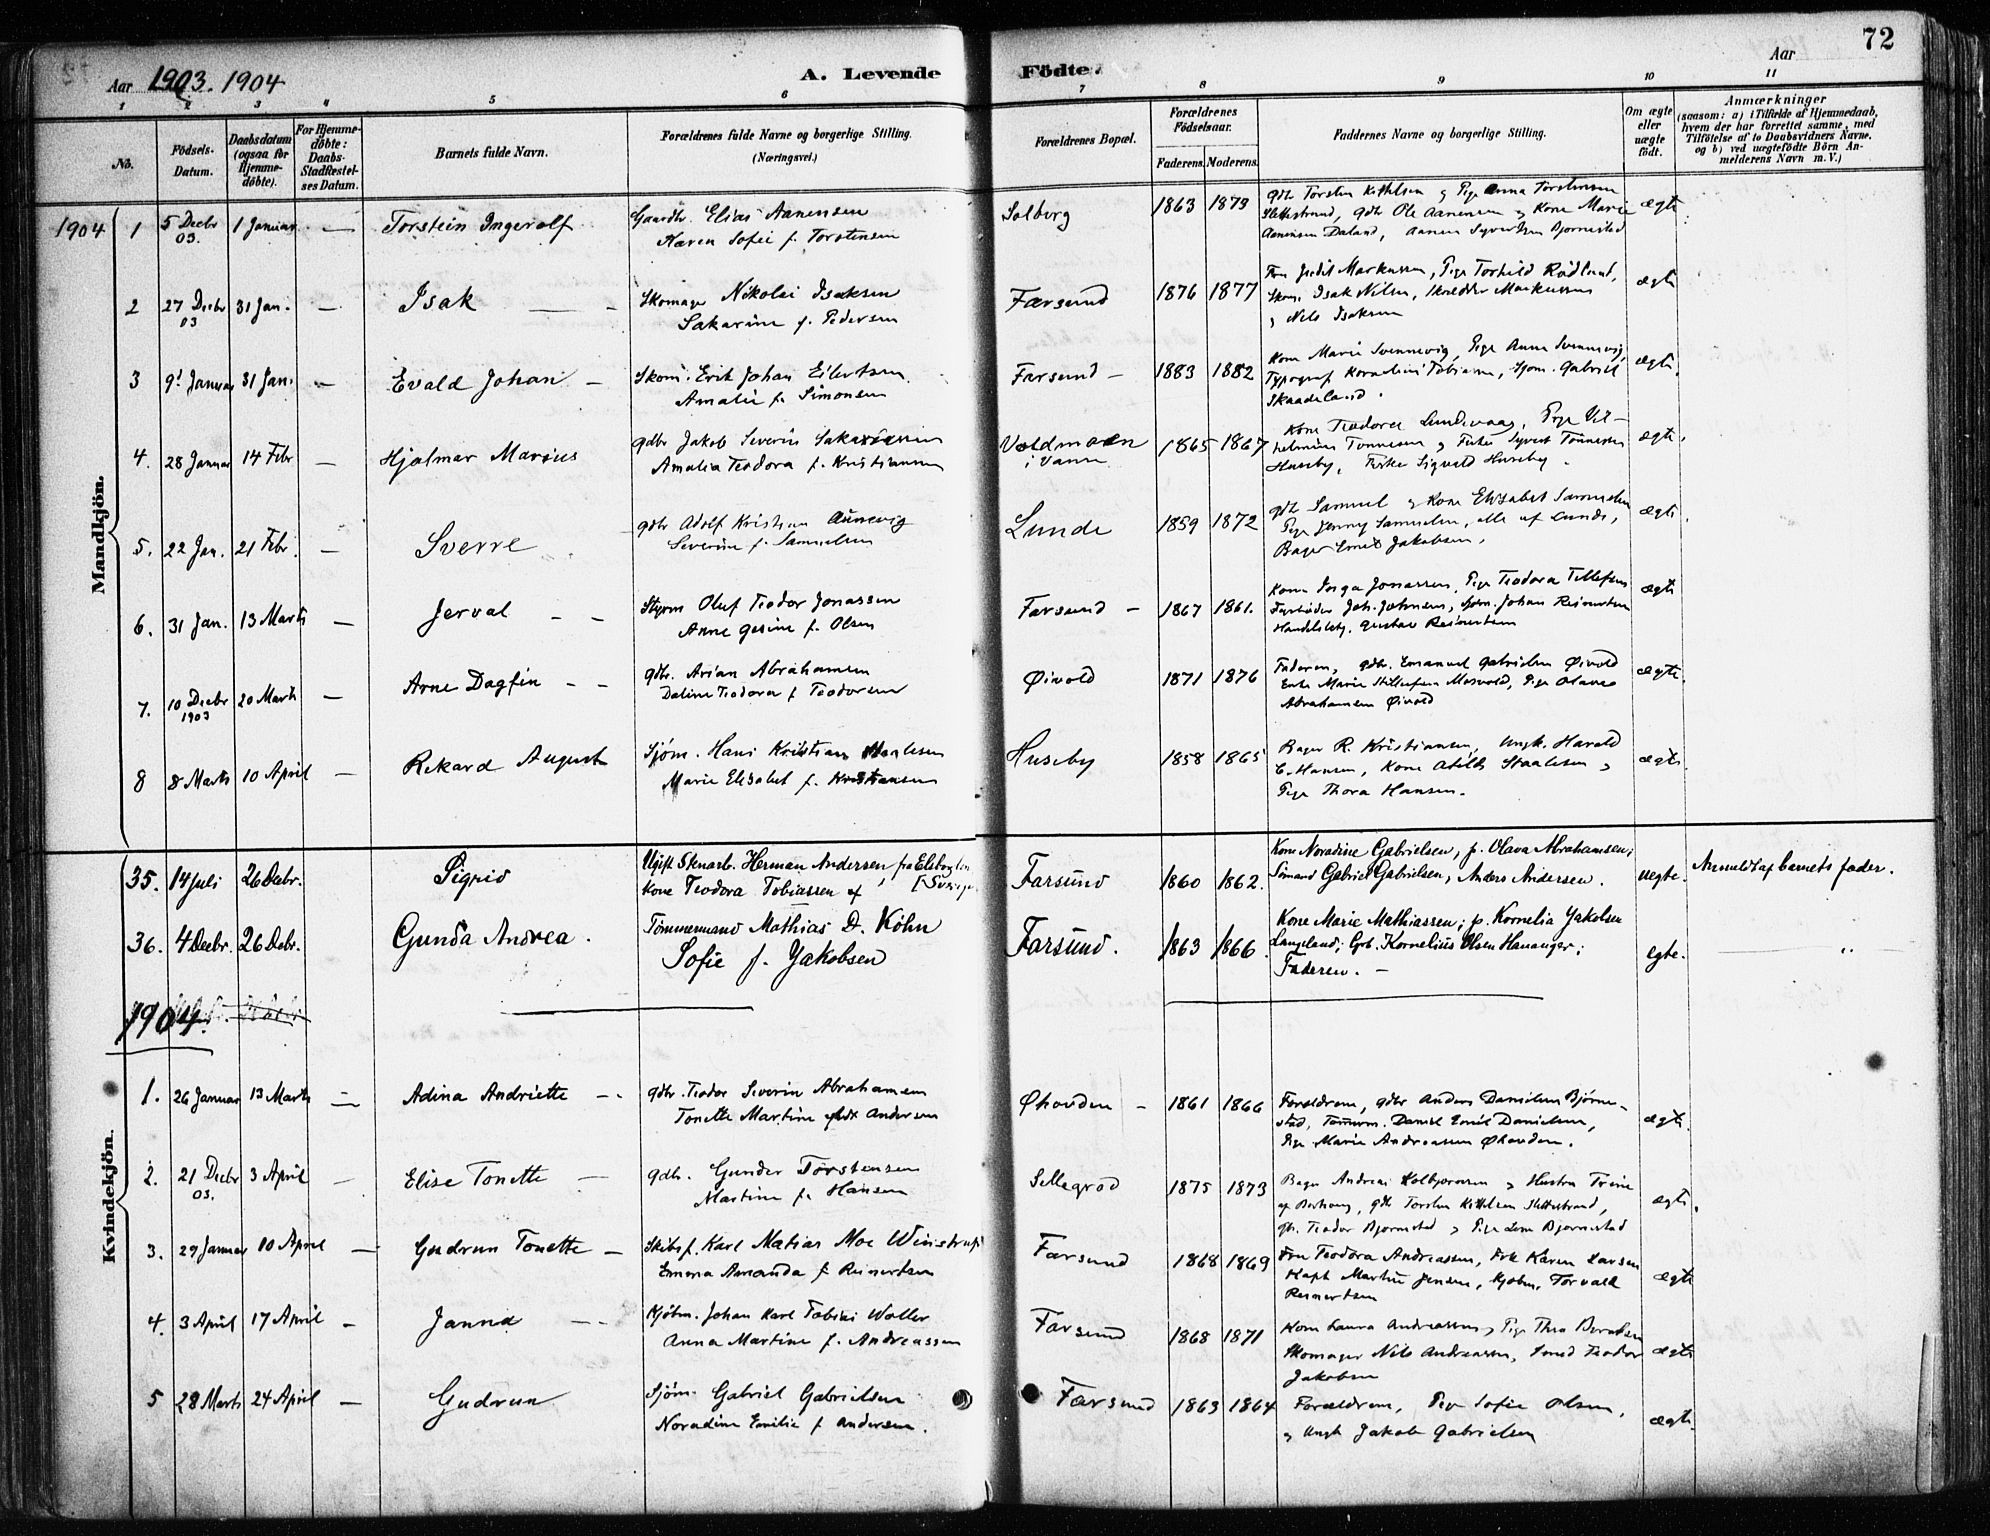 72
Aar 1903. 1904 A. Levende Födte. Aar
1 2 3 4 5 6 7 8 9 10 11
No. Födsels-Datum. Daabsdatum (ogsaa for Hjemme-döbte). For Hjemme-döbte: Daabs-Stadfæstel-ses Datum. Barnets fulde Navn. Forældrenes fulde Navne og borgerlige Stilling. (Næringsvei.) Forældrenes Bopæl. Forældrenes Födselsaar. Faderens. Moderens. Faddernes Navne og borgerlige Stilling. Om ægte eller uægte født. Anmærkninger (saasom: a) i Tilfælde af Hjemmedaab, hvem der har forrettet samme, med Tilföielse af to Daabsvidners Navne, og b) ved uægtefödte Börn An-melderens Navn m. V.)
Mandkjön.
1904 1 5 Decbr 03. 1 Januar — Torstein Ingerolf Gaardbr. Elias Aanensen Solberg 1863 1879 gdbr Torsten Kittelsen & Pige Anna Torstensen ægte
Karen Sofie f. Torstensen Slettestrand, gdbr Ole Aanensen & Kone Marie
Aanensen Daland, Aanen Syvertsen Bjørnestad
2 27 Decbr 03 31 Jan. — Isak — Skomager Nikolai Isaksen Farsund 1876 1877 Markussen, Pige Torhild Rødland, ægte
Sakarine f. Pedersen Skom. Isak Nilsen, Skrædder Markussen
& Nils Isaksen
3 9' Januar 31 Jan. — Evald Johan — Skom. Erik Johan Eilertsen Farsund — 1883 1882 Kone Marie Svennevig, Pige Anna Svennevig, ægte.
Amalie f. Simonsen Typograf Kornelius Tobiassen, Sjøm. Gabriel
Skaadeland.
4. 28 Januar 14 Febr — Hjalmar Marius gdbr Jakob Severin Sakariassen i Vanse 1865 1867 Kone Teodora Lundevaag, Pige Vil- ægte.
Amalia Teodora f. Kristiansen helmine Tønnesen & Fisker Syvert Tønnessen
Huseby, Fisker Sigvald Huseby.
5. 22 Jan. 21 Febr. — Sverre gdbr Adolf Kristian Aunevig Lunde 1859 1872 gdb Samuel & Kone Elisabet Samuelsen ægte
Severine f. Samuelsen Pige Jenny Samuelsen, alle af Lunde,
Bager Jakobsen,
6. 31 Jan. 13 Marts — Jerval — — Styrm Oluf Teodor Jonassen Farsund — 1867 1861. Kone Inga Jonassen, Pige Teodora Tellefsen ægte
Anne Gesine f. Olsen Fyrbøder Joh. Johnsen, Sjøm. Johan Reinertsen
Handelsbetj. Gustav Reinertsen
7. 10 Decbr 1903 20 Marts — Arne Dagfin — — gdbr. Arian Abrahamsen Øivold 1871 1876 Faderen, gdbr. Emanuel Gabrielsen Øivold ægte.
Daline Teodora f. Teodorsen Enke Marie Mosvold, Pige Olava
Abrahamsen Øivold
8 8 Marts 10 April — Rikard August Sjøm. Hans Kristian Staalesen Huseby 1858 1865 Bager R. Kristiansen, Ungk. Harald ægte
Marie Elisabet f. Kristiansen C. Hansen, Kone Staalesen &
Pige Thora Hansen.
Kvindekjön.
35. 14 Juli 26 Decbr. Sigrid Ugift Stenarb. Herman Andersen, fra Farsund 1860 1862. Kone Noradine Gabrielsen, p. Olava Abrahamsen; uegte. Anmeldt af barnets fader.
Kone Teodora Tobiassen af Sömand Gabriel Gabrielsen, Anders Andersen.
36. 4 Decbr. 26 Decbr. Gunda Andrea. Tömmermand Mathias D. Köhn Farsund. 1863 1866. Kone Marie Mathiassen; p. Kornelia Jakobsen egte. "
Sofie f. Jakobsen Langeland; Grb. Kornelius Olsen Hananger;
Faderen. —
1904.
1. 26 Januar 13 Marts — Adina Andriette — gdbr. Teodor Severin Abrahamsen Øhovden — 1861 1866 Forældrene, gdbr Anders Danielsen Bjørne- ægte.
Tonette Martine f. Andersen stad, Tømm. Daniel Emil Danielsen,
Pige Marie Andreassen Øhovden.
2. 21 Decbr 03. 3 April — Elise Tonette — gdbr. Gunder Torstensen Sellegrod 1875 1873 Bager Andreas Kolbjørnsen & Hustru Trine ægte.
Martine f. Hansen gdb Torsten Kittelsen Slettestrand,
gb. Teodor Bjørnestad & Pige Lena Bjørnestad
3. 29 Januar 10 April — Gudrun Tonette — Skibsf. Karl Matias Moe Winstrup Farsund 1868 1869 Fru Teodora Andreassen, Frk Karen Larsen ægte
Emma Amanda f. Reinertsen Kapt Martin Jensen, Kjøbm. Torvald
Reinertsen
4. 3 April 17 April — Janna — Kjøbm. Johan Karl Tobias Waller Farsund 1868 1871 Kone Laura Andreassen, Pige Thea Berntsen ægte
Anna Martine f. Andreassen Skomager Nils Andreassen, Smed Teodor
Jakobsen
5 28 Marts 24 April — Gudrun Sjøm. Gabriel Gabrielsen Farsund 1863 1864 Forældrene, Pige Sofie Olsen, ægte
Noradine Emilie f. Andersen. & Ungk Jakob Gabrielsen